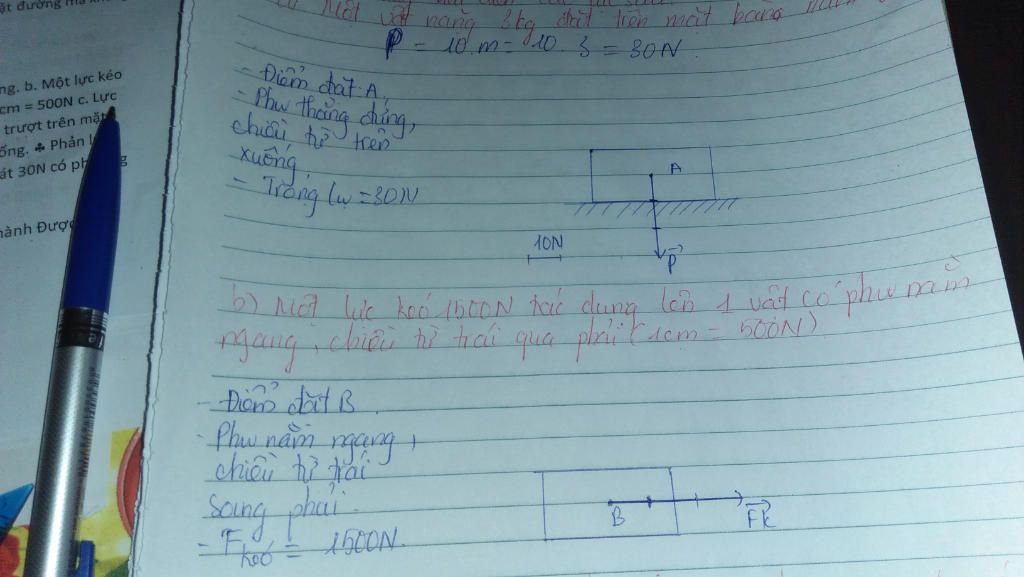 ng. b. Một lực kéo
cm = 500N c. Lực
trượt trên mặt
ống. ♣ Phản l
át 30N có ph g
hành Được
Một vật nặng 3kg đặt trên mặt bàng
P = 10.m = 10.3 = 30N
- Điểm đặt A.
- Phư thẳng đứng,
chiều từ trên
xuống
- Trọng lư = 30N
A
10N
P
b) Một lực kéo 1500N tác dụng lên 1 vật có phư nằm
ngang, chiều từ trái qua phải (1cm = 500N)
- Điểm đặt B.
- Phư nằm ngang,
chiều từ trái
sang phải.
- Fkéo = 1500N.
B
Fk